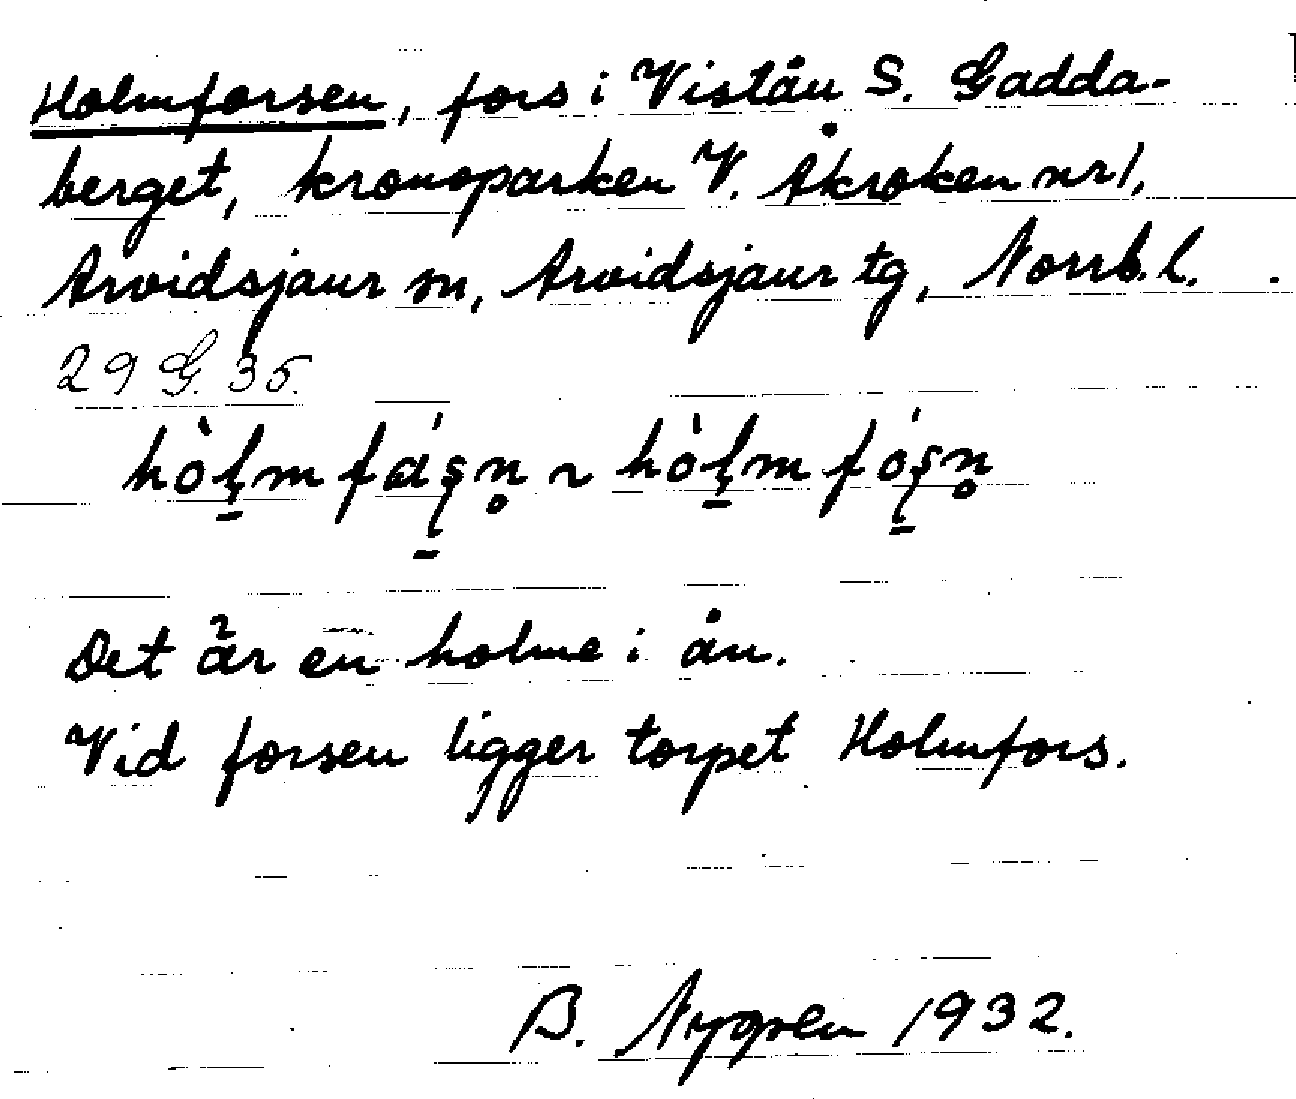 Holmforsen, fors i Viståu S. Gadda-
berget, kronoparken V. Åkroken nr 1,
Arvidsjaur sn, Arvidsjaur tg, Norrb. l.
29 G. 35.
hòl̠m fáʂn̥ ~ hòl̠m fóʂn̥
Det är en holme i ån.
Vid forsen ligger torpet Holmfors.
B. Nygren 1932.